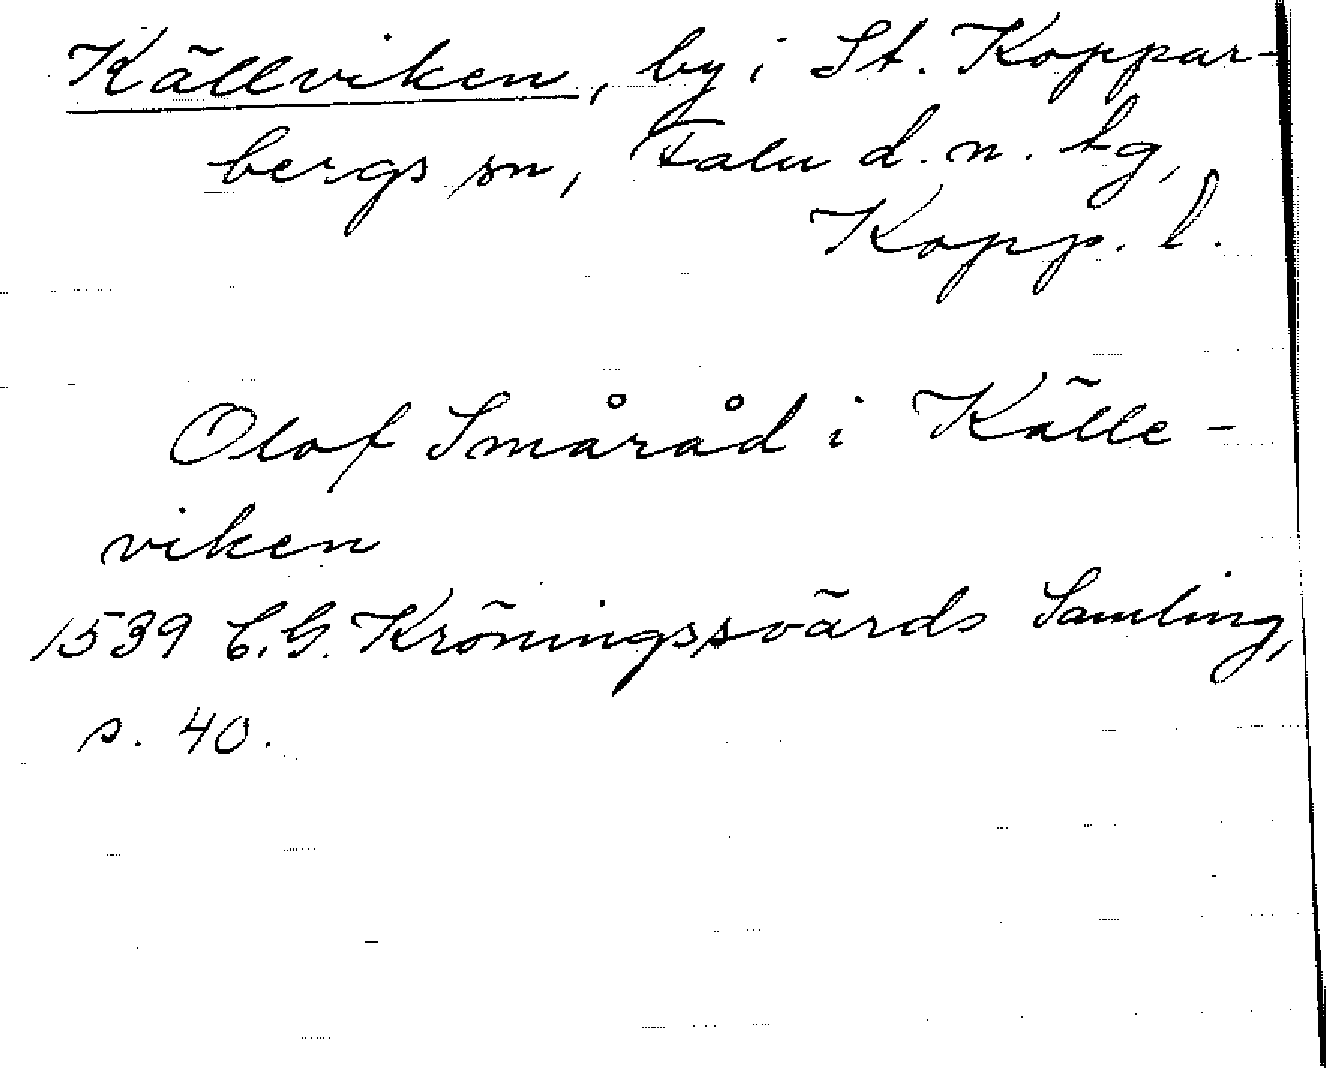 Källviken, by i St. Koppar-
bergs sn, Falu d. n. tg,
Kopp. l.
Olof Småråd i Källe-
viken
1539 C.G. Kröningssvärds Samling,
s. 40.